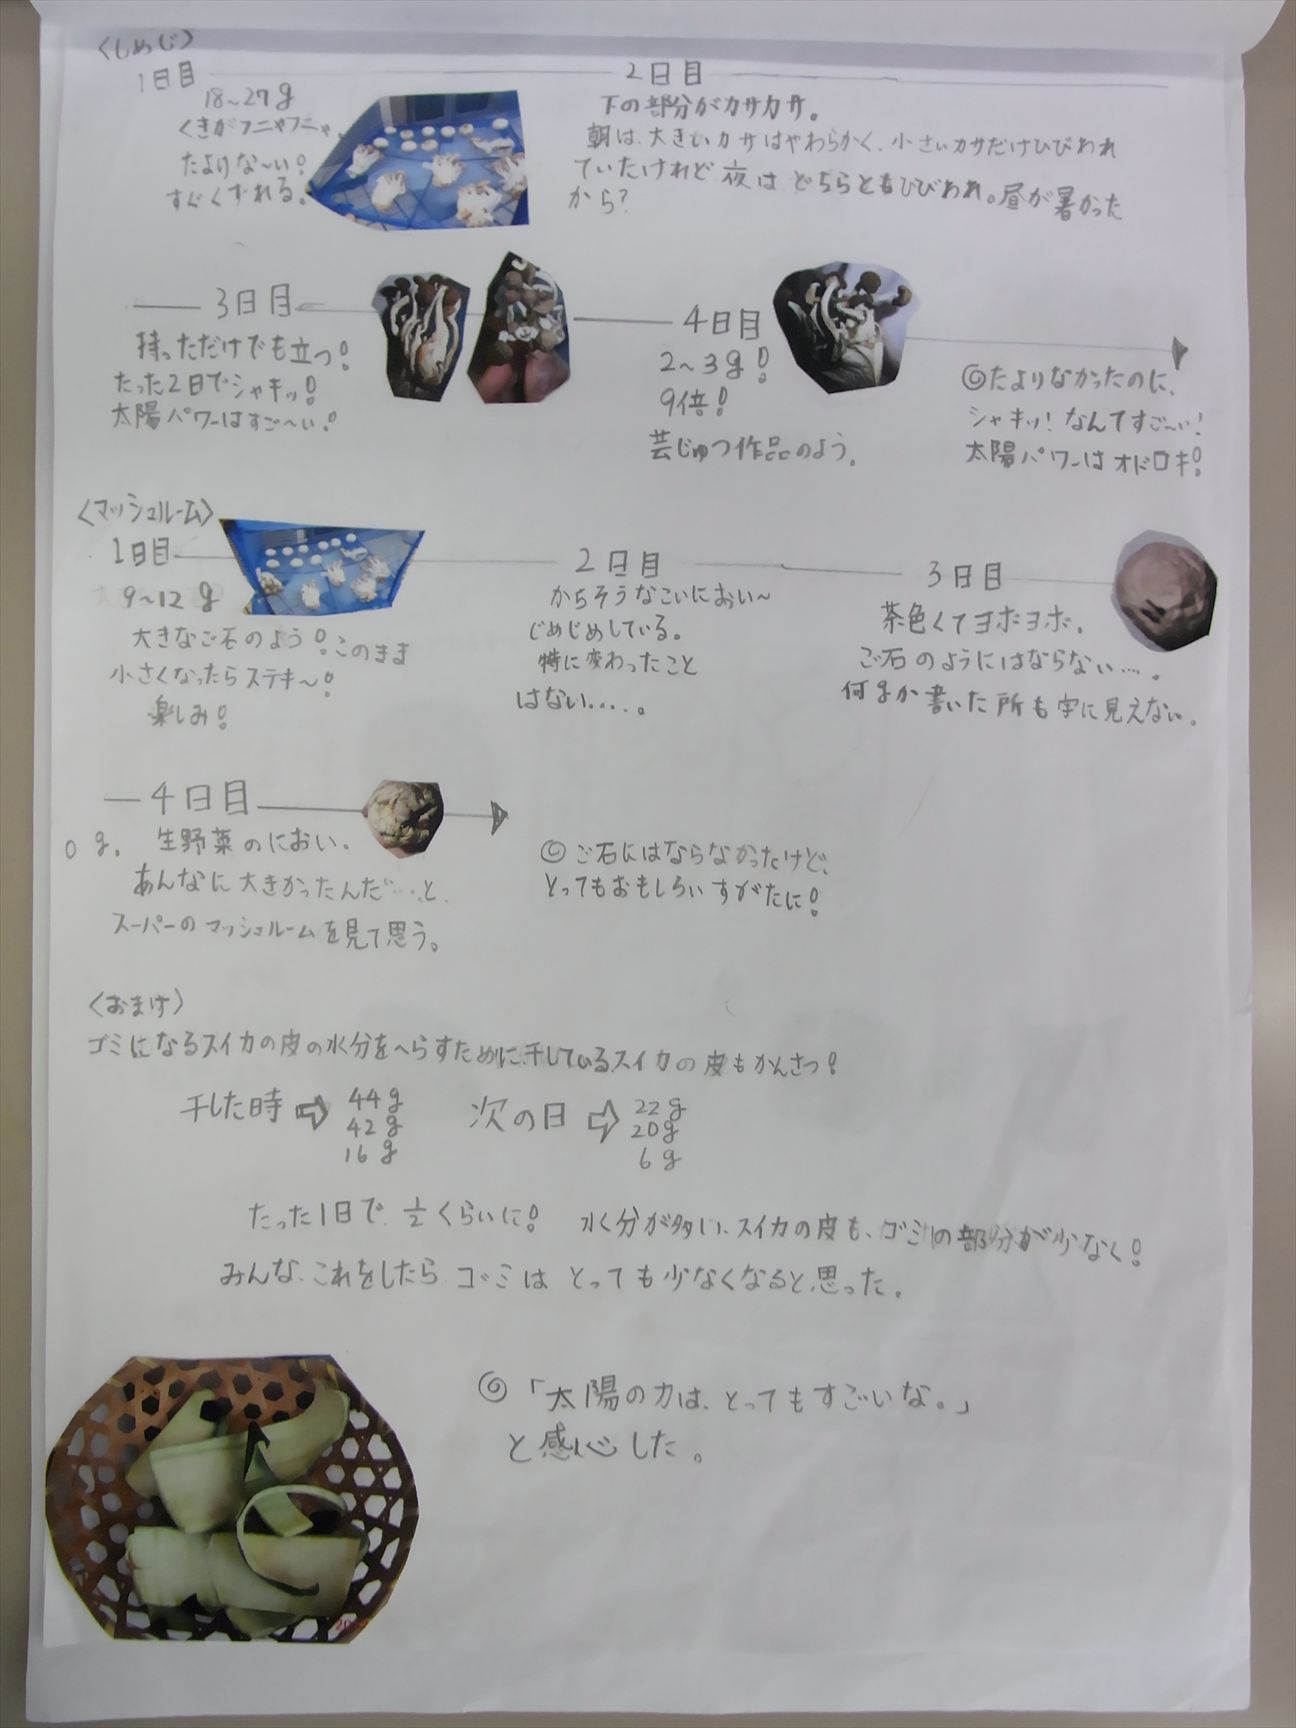 〈しめじ〉
1日目
18~27g
くきがフニャフニャ。
たよりな~い!
すぐくずれる。
2日目
下の部分がカサカサ。
朝は、大きいカサはやわらかく、小さいカサだけひびわれ
ていたけれど、夜はどちらともひびわれ。昼が暑かった
から?
3日目
持っただけでも立つ!
たった2日でシャキッ!
太陽パワーはすご~い!
4日目
2~3g!
9倍!
芸じゅつ作品のよう。
◎たよりなかったのに、
シャキッ!なんてすご~い!
太陽パワーはオドロキ!
〈マッシュルーム〉
1日目
9~12g
大きなご石のよう!このまま
小さくなったらステキ~!
楽しみ!
2日目
かちそうなこいにおい~
じめじめしている。
特に変わったこと
はない.....。
3日目
茶色くてヨボヨボ。
ご石のようにはならない....。
何gか書いた所も字に見えない。
4日目
0g。生野菜のにおい。
あんなに大きかったんだ...と、
スーパーのマッシュルームを見て思う。
◎ご石にはならなかったけど、
とってもおもしろいすがたに!
〈おまけ〉
ゴミになるスイカの皮の水分をへらすために、干しているスイカの皮もかんさつ!
干した時⇨44g
42g
16g
次の日⇨22g
20g
6g
たった1日で、1/2くらいに! 水く分が多い、スイカの皮も、ゴミの部分が少なく!
みんな、これをしたら、ゴミはとっても少なくなると思った。
◎「太陽の力は、とってもすごいな。」
と感心した。